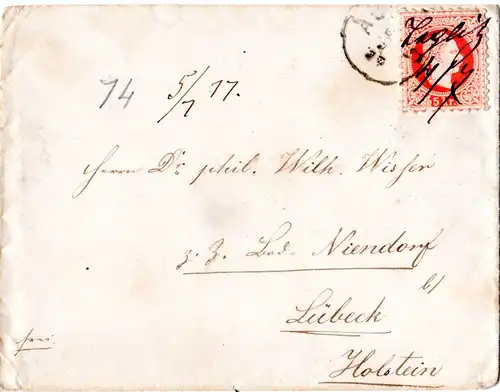 74 5/7 77.
Herrn Dr phil. Wilh. Wisser
z. Z. Bad Niendorf
b/
Lübeck
Holstein
frei
5 Kr.